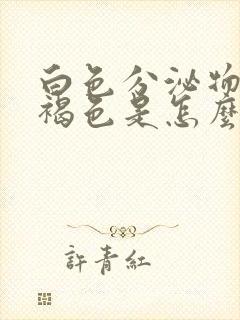 白色分泌物
褐色是怎麼
許青紅